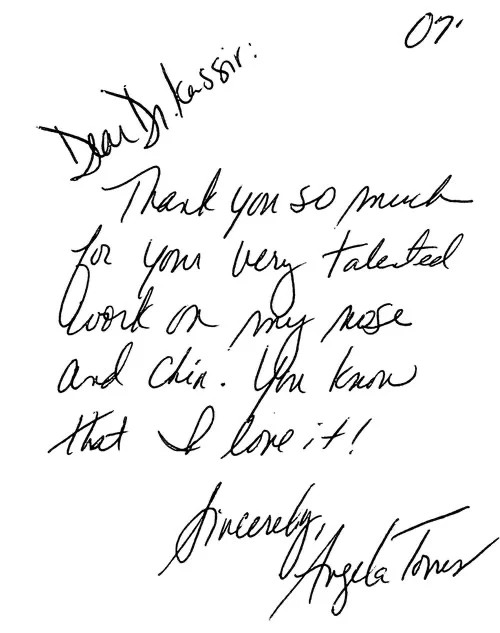 07'
Dear Dr. Kassir:
Thank you so much
for your very talented
work on my nose
and chin. You know
that I love it!
Sincerely,
Angela Torres